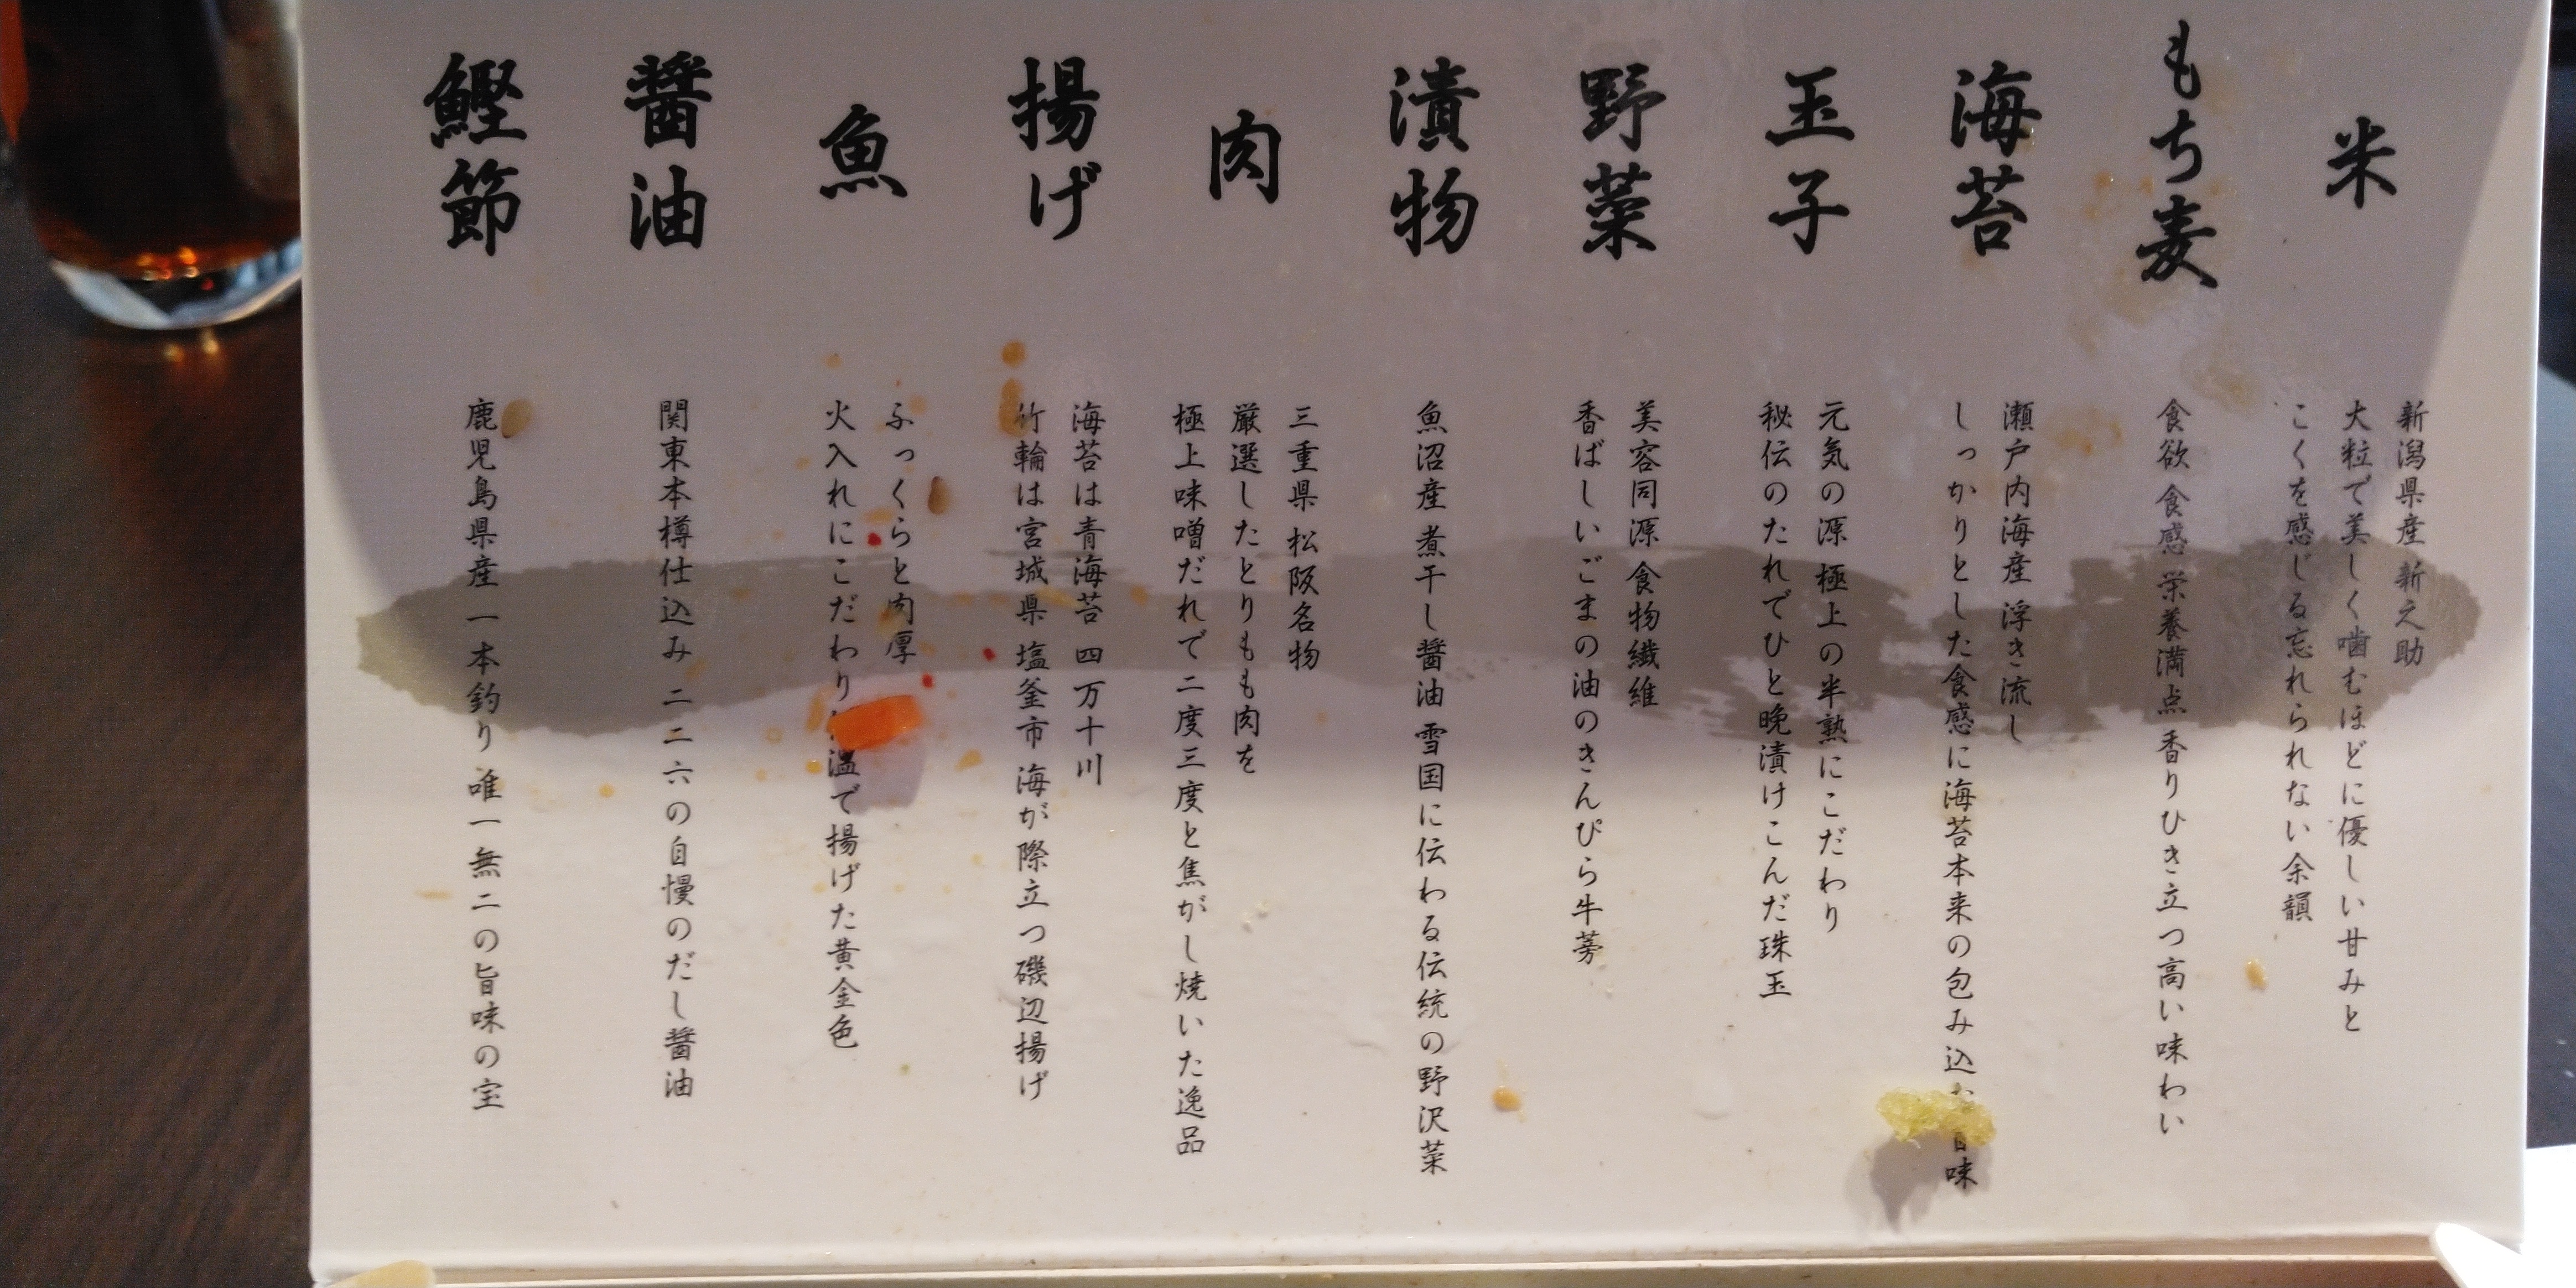 米
新潟県産 新之助
大粒で美しく噛むほどに優しい甘みと
こくを感じる忘れられない余韻
もち麦
食欲 食感 栄養満点 香りひき立つ高い味わい
海苔
瀬戸内海産 浮き流し
しっかりとした食感に海苔本来の包み込む旨味
玉子
元気の源 極上の半熟にこだわり
秘伝のたれでひと晩漬けこんだ珠玉
野菜
美容同源 食物繊維
香ばしいごまの油のきんぴら牛蒡
漬物
魚沼産 煮干し醤油 雪国に伝わる伝統の野沢菜
肉
三重県 松阪名物
厳選したとりもも肉を
極上味噌だれで二度三度と焦がし焼いた逸品
揚げ
海苔は青海苔 四万十川
竹輪は宮城県 塩釜市 海が際立つ磯辺揚げ
魚
ふっくらと肉厚
火入れにこだわり 温で揚げた黄金色
醤油
関東本樽仕込み 二二六の自慢のだし醤油
鰹節
鹿児島県産 一本釣り 唯一無二の旨味の宝